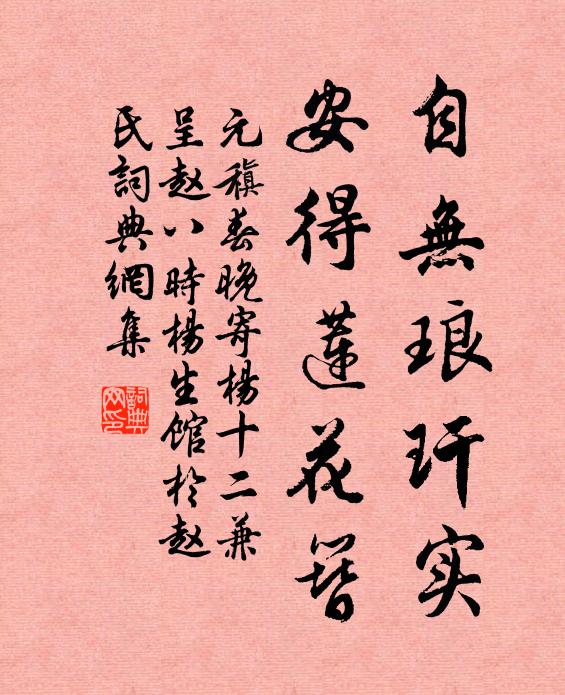 自無琅玕实
安得蓮花簪
元稹春晚寄楊十二兼
呈赵八時楊生館於赵
氏詞典網集
詞典网印